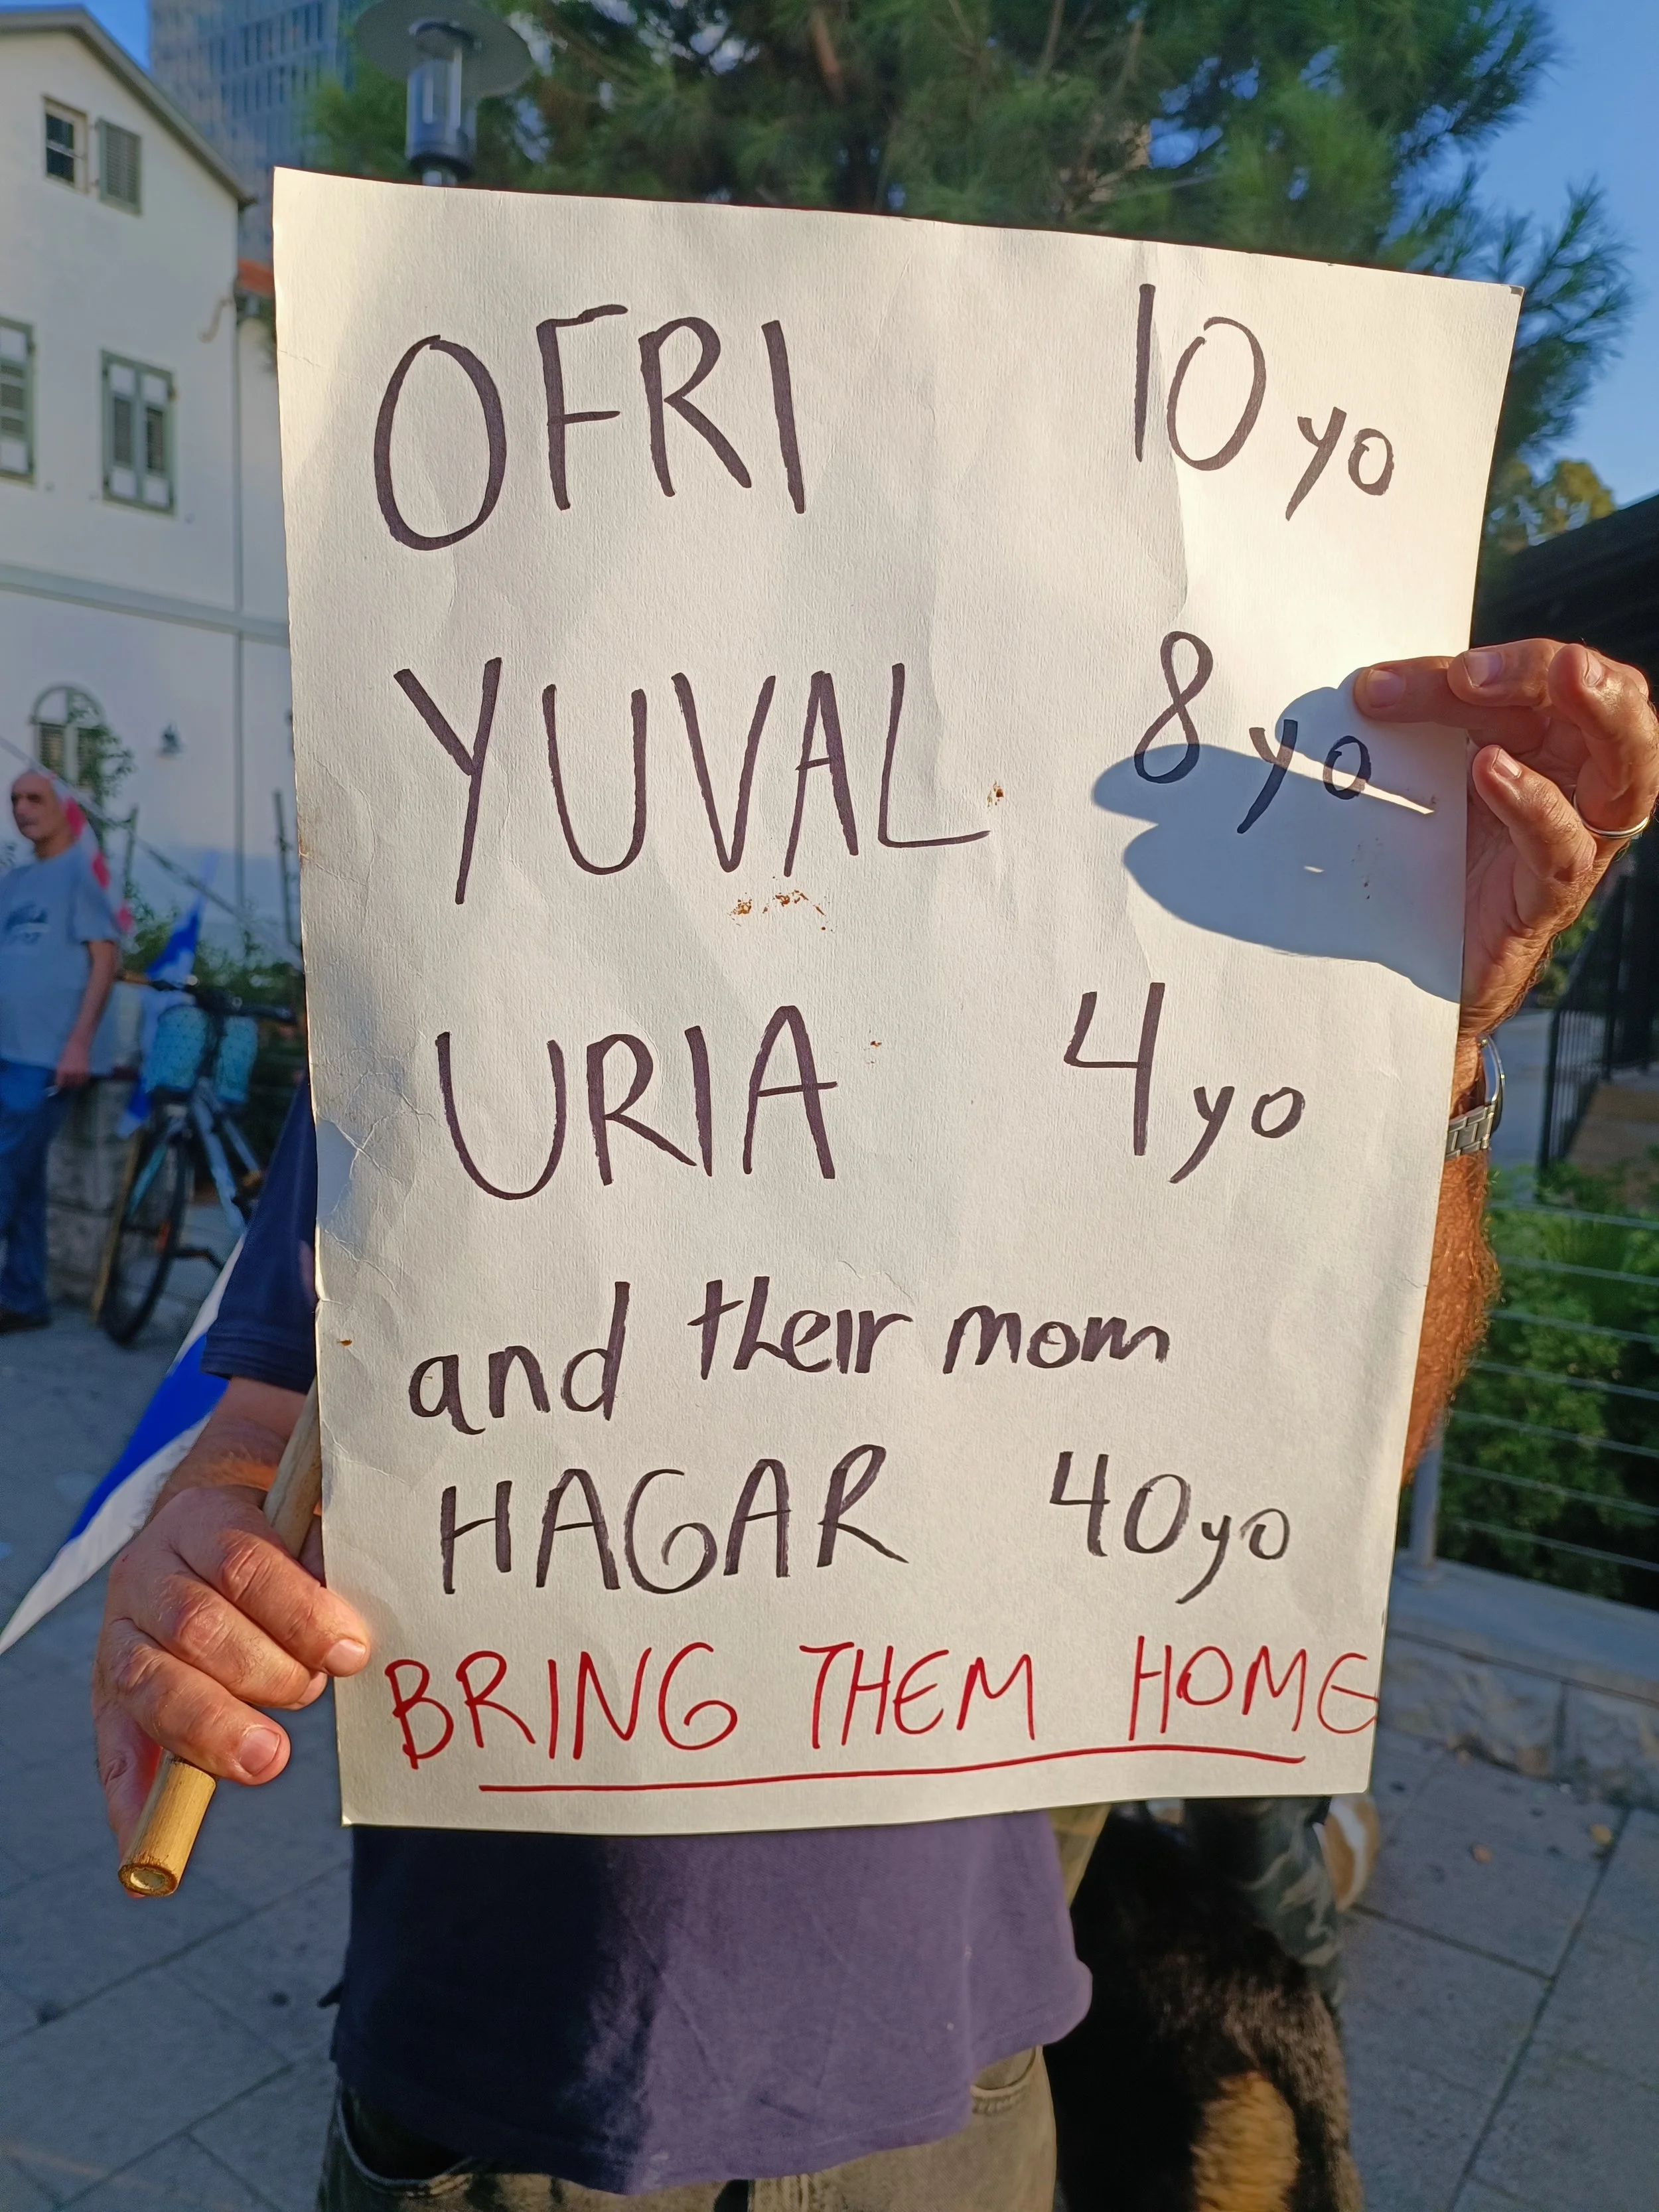 OFRI 10 yo
YUVAL 8 yo
URIA 4 yo
and their mom
HAGAR 40 yo
BRING THEM HOME